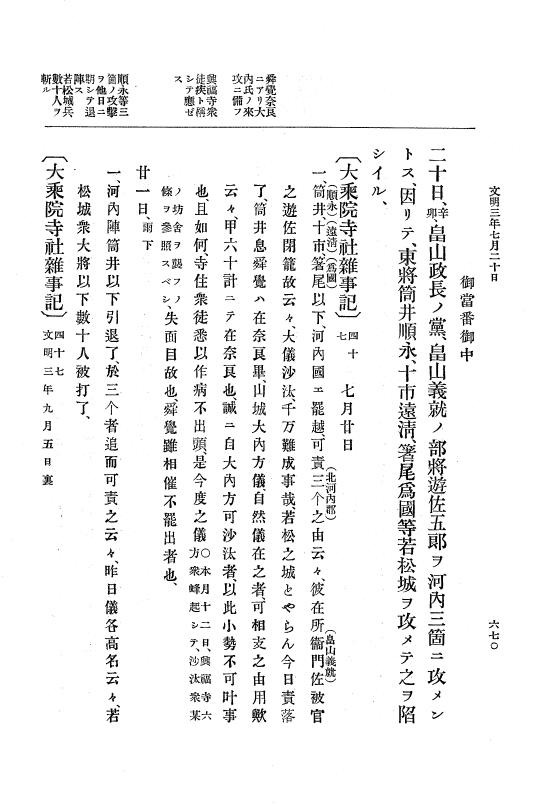 文明三年七月二十日
六七〇
御當番御中
二十日、辛卯、畠山政長ノ黨、畠山義就ノ部將遊佐五郞ヲ河內三箇ニ攻メン
トス、因リテ、東將筒井順永、十市遠淸、箸尾爲國等若松城ヲ攻メテ之ヲ陷
シイル、
〔大乘院寺社雜事記〕四十七 七月廿日
一、筒井、(順永)十市、(遠淸)箸尾(爲國)以下、河內國エ罷越、可責三个(北河內郡)之由云々、彼在所衞門佐(畠山義就)被官
之遊佐閉籠故云々、大儀沙汰、千万難成事哉、若松之城とやらん今日責落
了、筒井息舜覺ハ在奈良畢、山城大內方儀、自然儀在之者、可相支之由用歟
云々、甲六十計ニテ在奈良也、誠ニ自大內方可沙汰者、以此小勢不可叶事
也、且如何寺住衆徒悉以作病不出頭、是今度之儀〇本月十二日、興福寺六方衆蜂起シテ、沙汰衆某
ノ坊舍ヲ襲フノ條ヲ參照スベシ、失面目故也、舜覺雖相催不罷出者也、
廿一日、雨下
一、河內陣筒井以下引退了、於三个者追而可責之云々、昨日儀各高名云々、若
松城衆大將以下數十人被打了、
〔大乘院寺社雜事記〕四十七 文明三年九月五日裏
舜覺奈良
ニアリ大
內氏ノ來
攻ニ備フ
興福寺衆
徒疾ト稱
シテ應ゼ
ス
順永等三
箇ノ攻擊
ヲ他日ニ
期シテ退
陣ス
若松城兵
數十人ヲ
斬ル